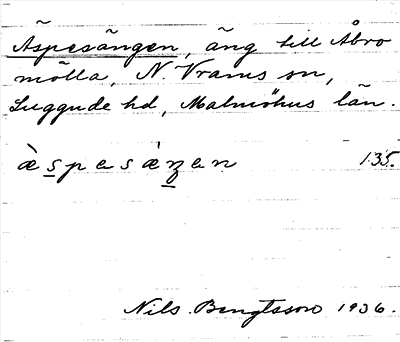 Äspesängen, äng till Åbro
mölla, N. Vrams sn,
Luggude hd, Malmöhus län.
æ̀s̲pesæ̀ŋ̲en 135.
Nils Bengtsson 1936.